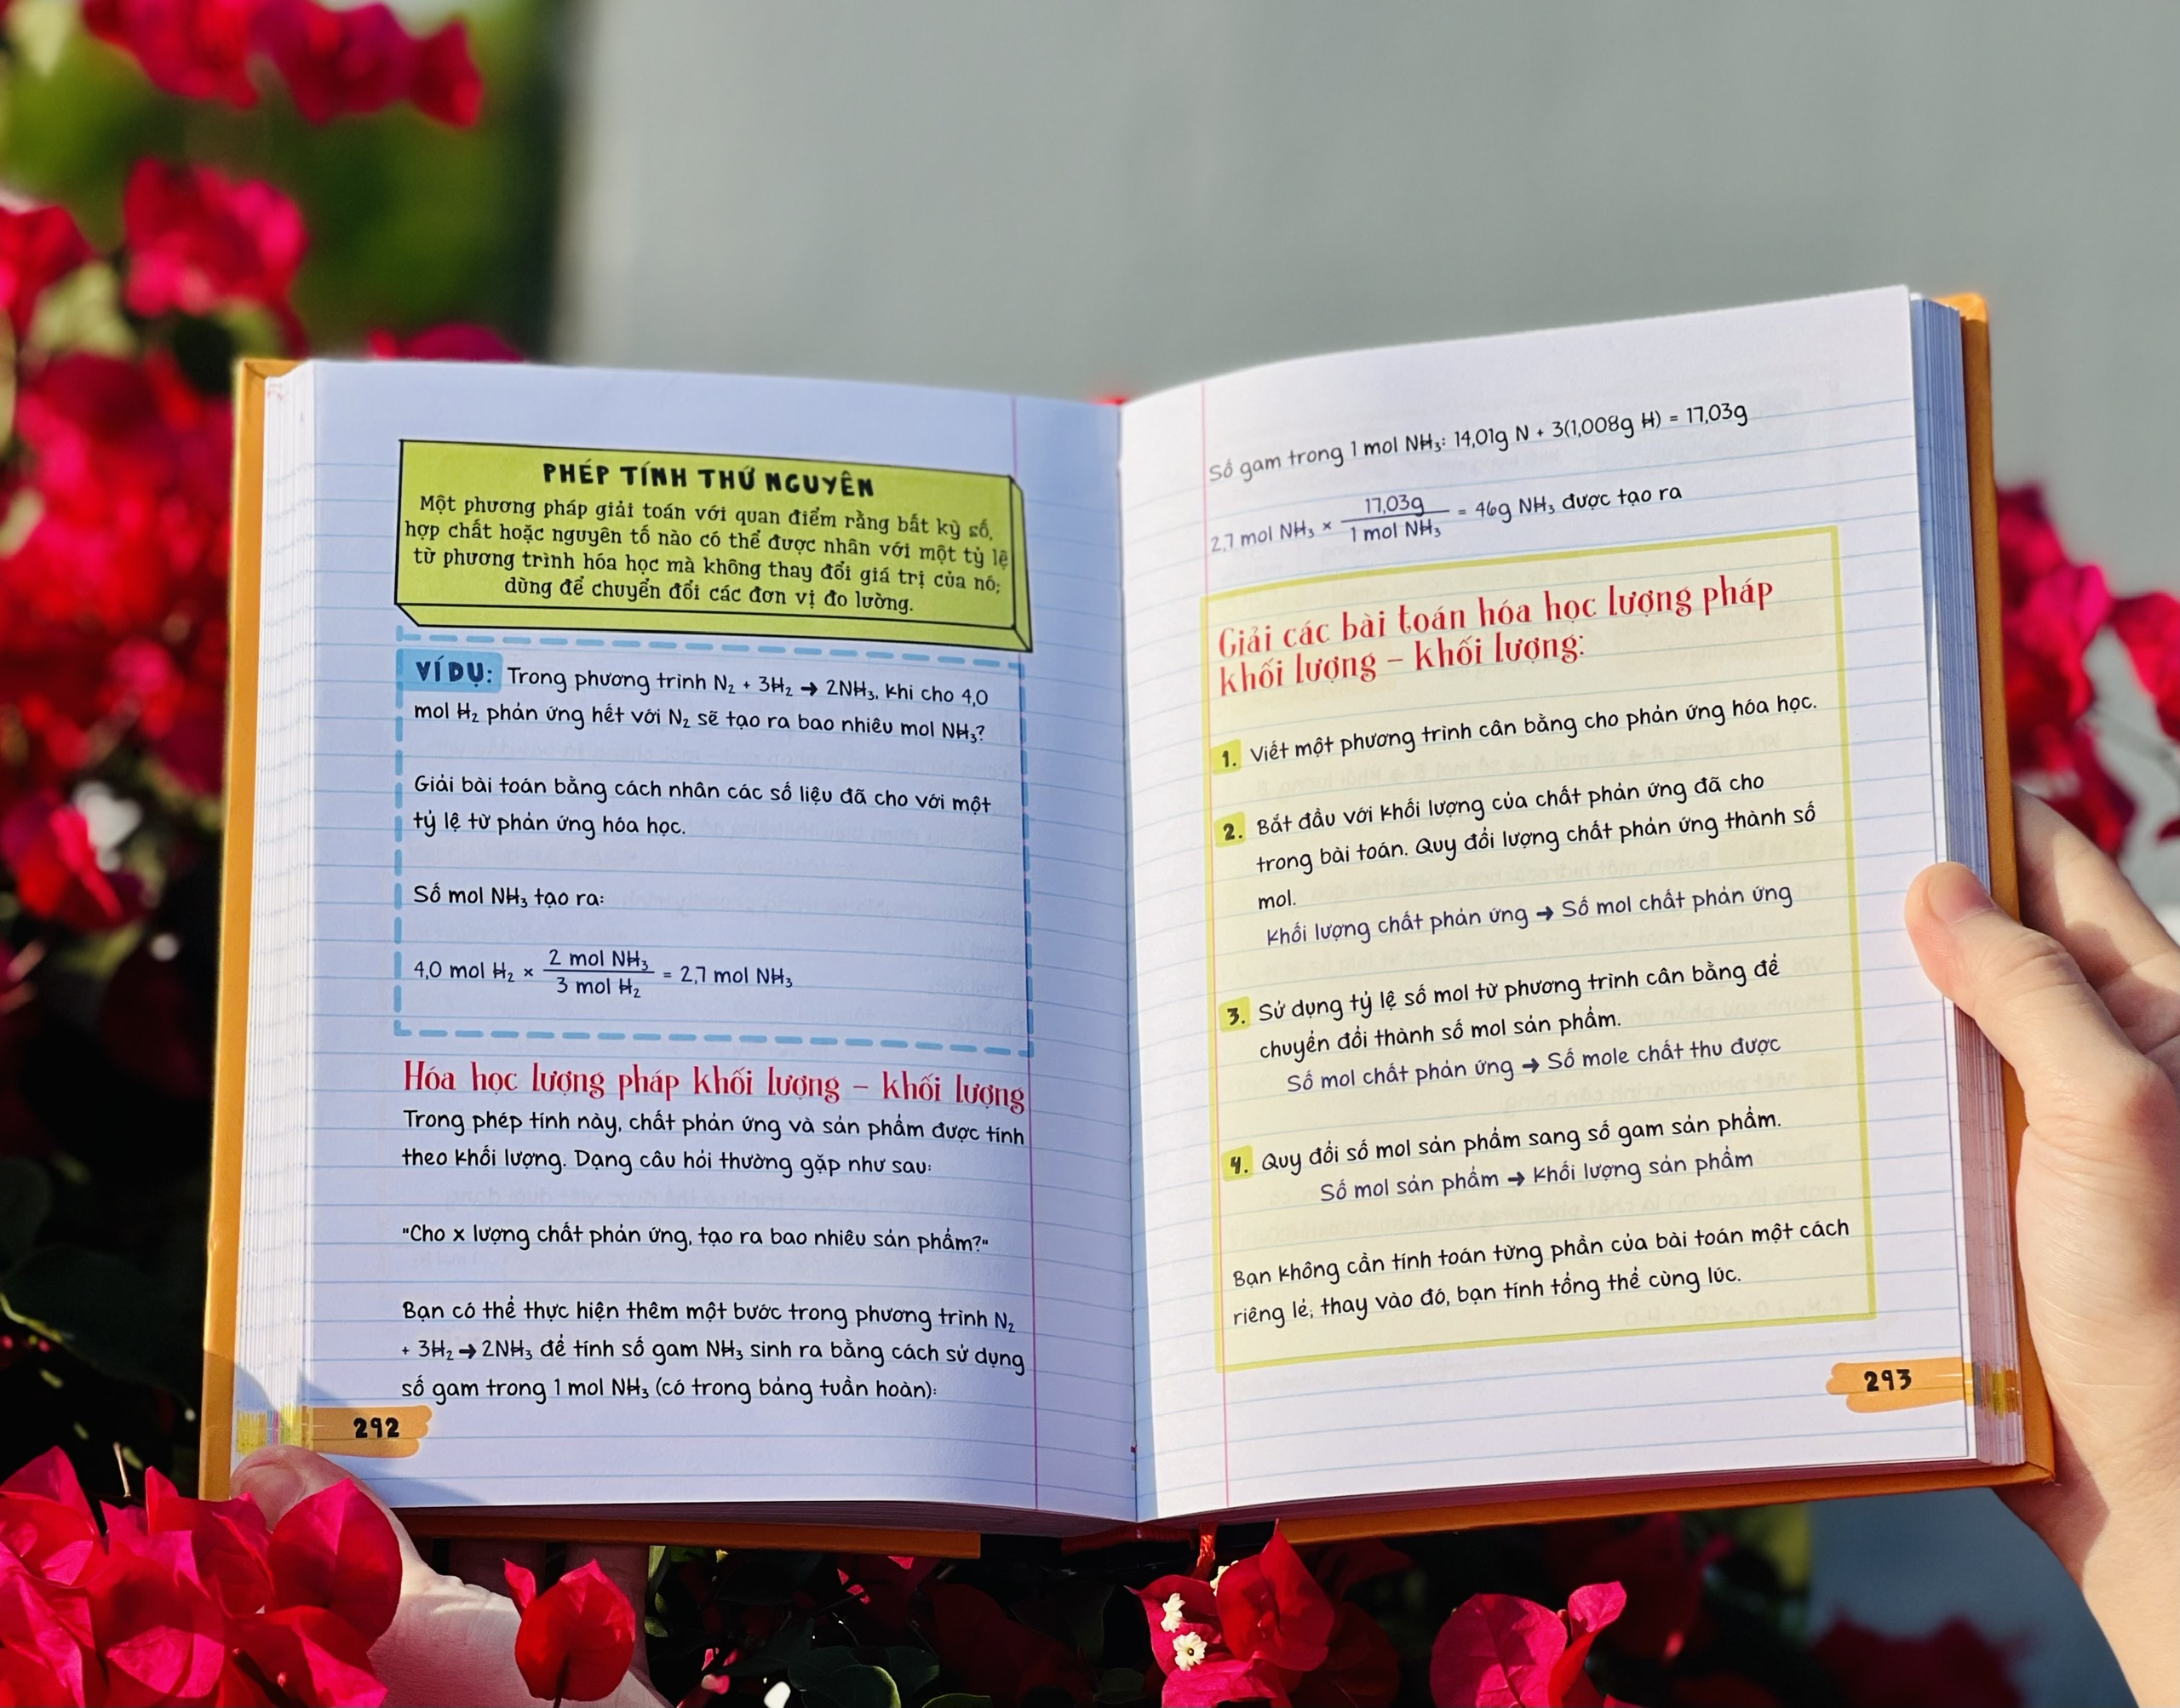 PHÉP TÍNH THỨ NGUYÊN
Một phương pháp giải toán với quan điểm rằng bất kỳ số,
hợp chất hoặc nguyên tố nào có thể được nhân với một tỷ lệ
từ phương trình hóa học mà không thay đổi giá trị của nó;
dùng để chuyển đổi các đơn vị đo lường.
VÍ DỤ: Trong phương trình N₂ + 3H₂ → 2NH₃, khi cho 4,0
mol H₂ phản ứng hết với N₂ sẽ tạo ra bao nhiêu mol NH₃?
Giải bài toán bằng cách nhân các số liệu đã cho với một
tỷ lệ từ phản ứng hóa học.
Số mol NH₃ tạo ra:
4,0 mol H₂ × 2 mol NH₃ / 3 mol H₂ = 2,7 mol NH₃
Hóa học lượng pháp khối lượng – khối lượng
Trong phép tính này, chất phản ứng và sản phẩm được tính
theo khối lượng. Dạng câu hỏi thường gặp như sau:
"Cho x lượng chất phản ứng, tạo ra bao nhiêu sản phẩm?"
Bạn có thể thực hiện thêm một bước trong phương trình N₂
+ 3H₂ → 2NH₃ để tính số gam NH₃ sinh ra bằng cách sử dụng
số gam trong 1 mol NH₃ (có trong bảng tuần hoàn):
292
Số gam trong 1 mol NH₃: 14,01g N + 3(1,008g H) = 17,03g
2,7 mol NH₃ × 17,03g / 1 mol NH₃ = 46g NH₃ được tạo ra
Giải các bài toán hóa học lượng pháp
khối lượng – khối lượng:
1. Viết một phương trình cân bằng cho phản ứng hóa học.
2. Bắt đầu với khối lượng của chất phản ứng đã cho
trong bài toán. Quy đổi lượng chất phản ứng thành số
mol.
Khối lượng chất phản ứng → Số mol chất phản ứng
3. Sử dụng tỷ lệ số mol từ phương trình cân bằng để
chuyển đổi thành số mol sản phẩm.
Số mol chất phản ứng → Số mole chất thu được
4. Quy đổi số mol sản phẩm sang số gam sản phẩm.
Số mol sản phẩm → Khối lượng sản phẩm
Bạn không cần tính toán từng phần của bài toán một cách
riêng lẻ; thay vào đó, bạn tính tổng thể cùng lúc.
293